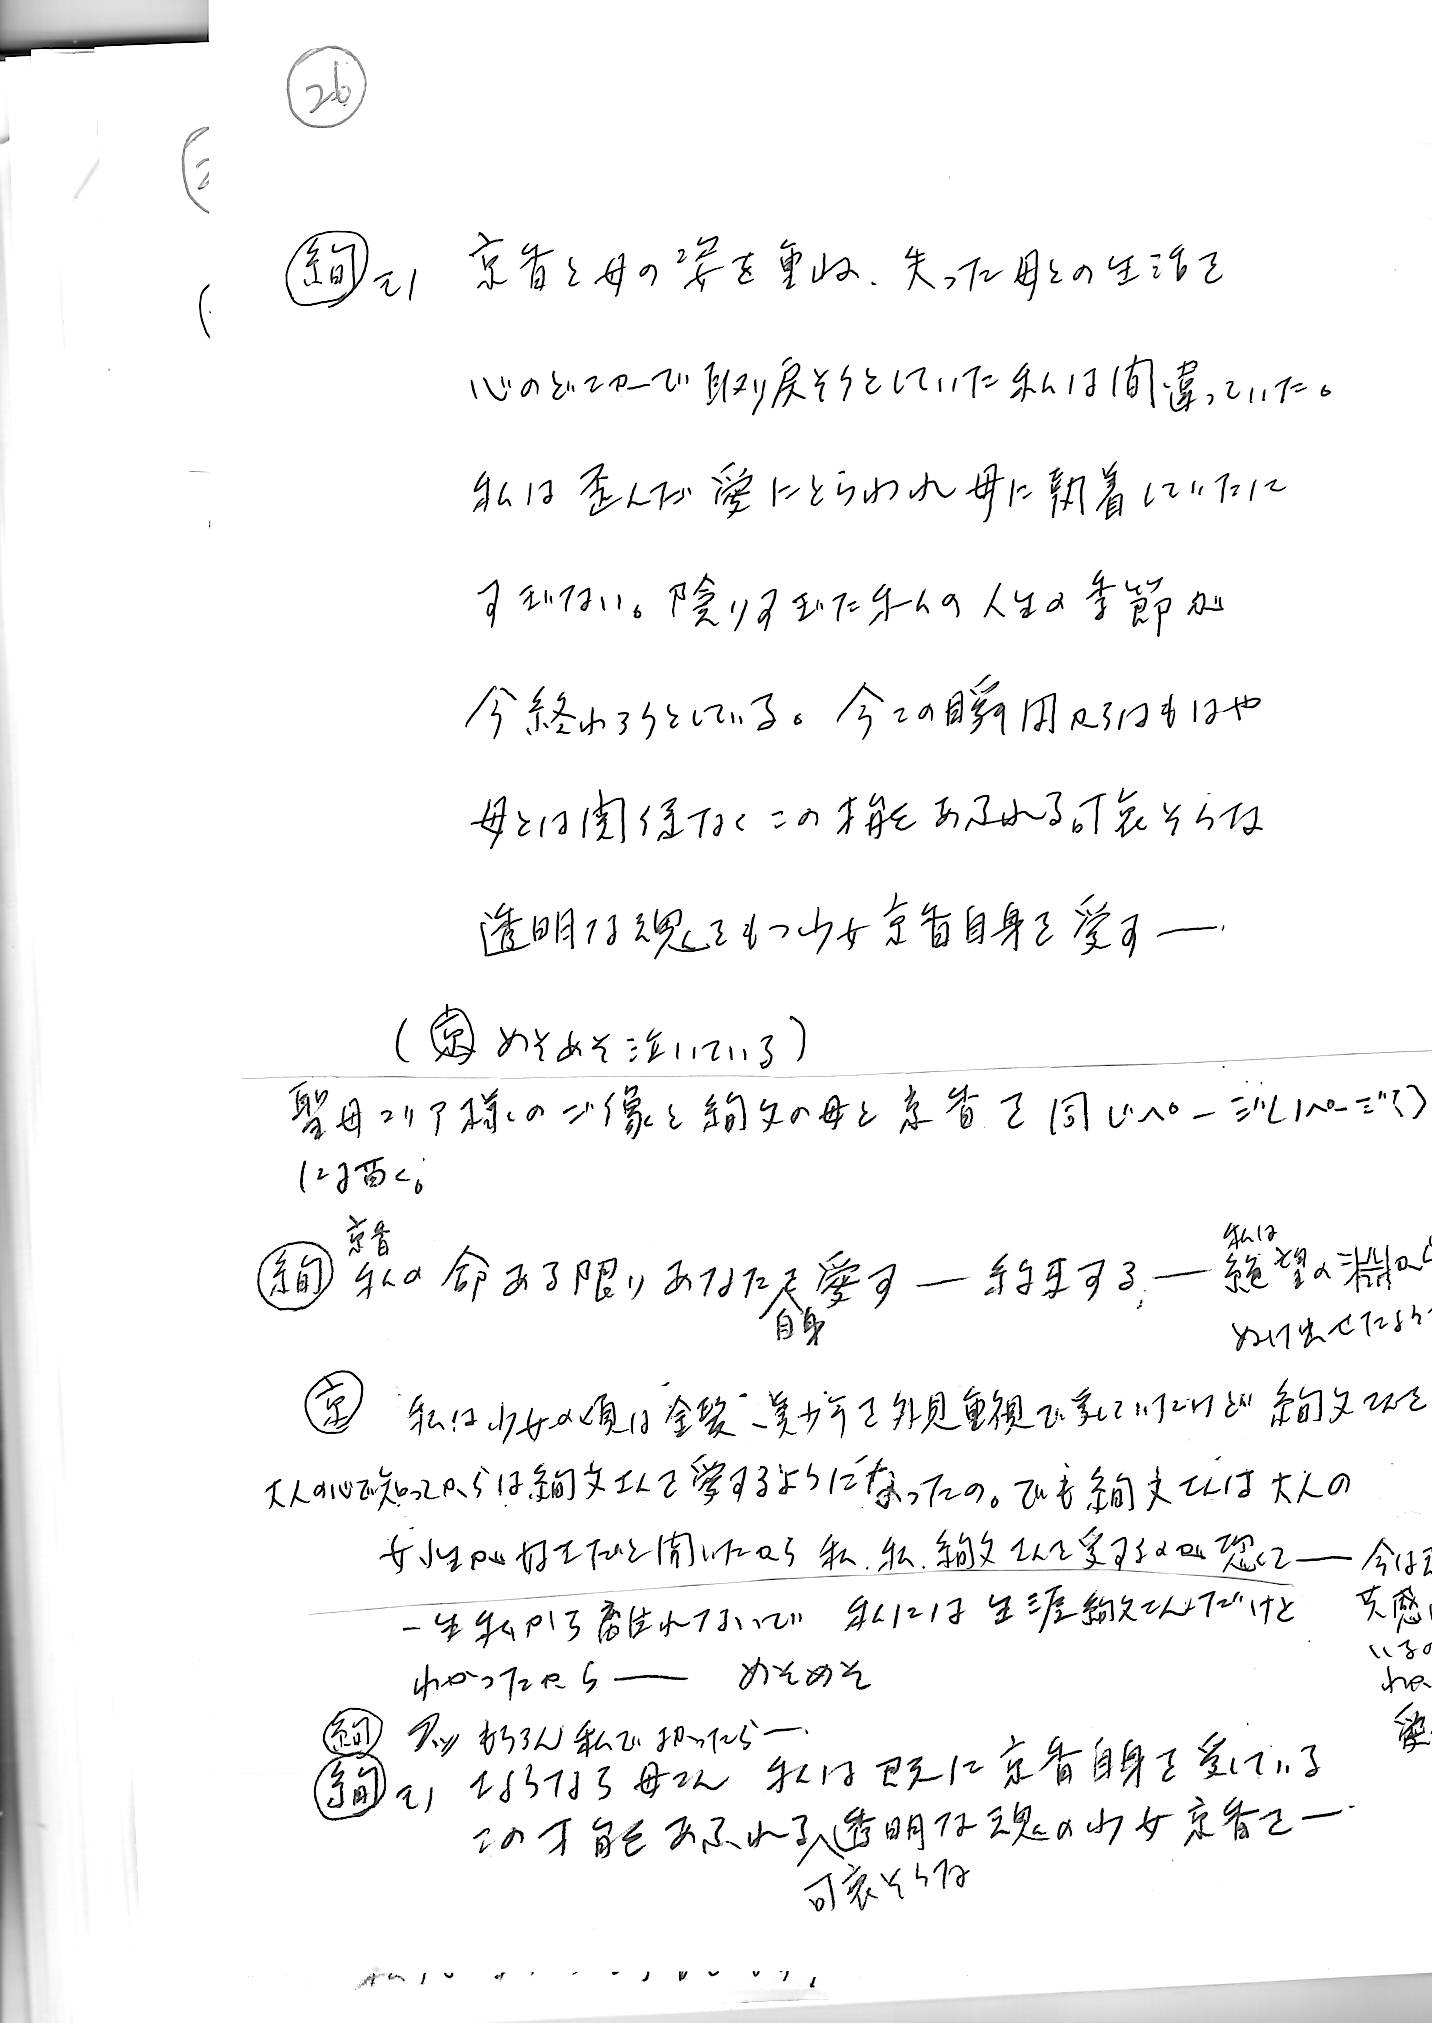 26
絢モノ 京香と母の姿を重ね、失った母との生活を
心のどこかで取り戻そうとしていた私は間違っていた。
私は歪んだ愛にとらわれ母に執着していたに
すぎない。陰りすぎた私の人生の季節が
今終わろうとしている。今この瞬間からはもはや
母とは関係なくこの才能あふれる可哀そうな
透明な魂をもつ少女京香自身を愛す―.
(京 めそめそ泣いている)
聖母マリア様のご像と絢文の母と京香を同じページ(1ページ)
に描く。
絢 京香 私の命ある限りあなた自身を愛す―約束する―私は絶望の淵から
ぬけ出せたよう
京 私は少女の頃は金髪美少年を外見重視で愛していたけど絢文さんを
大人の心で知ってからは絢文さんを愛するようになったの。でも絢文さんは大人の
女性が好きだと聞いたから私、私、絢文さんを愛するのが恐くて―今は
共感
いるの
愛
一生私から離れないで 私には生涯絢文さんだけと
わかったから― めそめそ
絢 アッ もちろん私でよかったら―.
絢モノ さようなら母さん 私は既に京香自身を愛している
この才能あふれる可哀そうな透明な魂の少女京香を―.